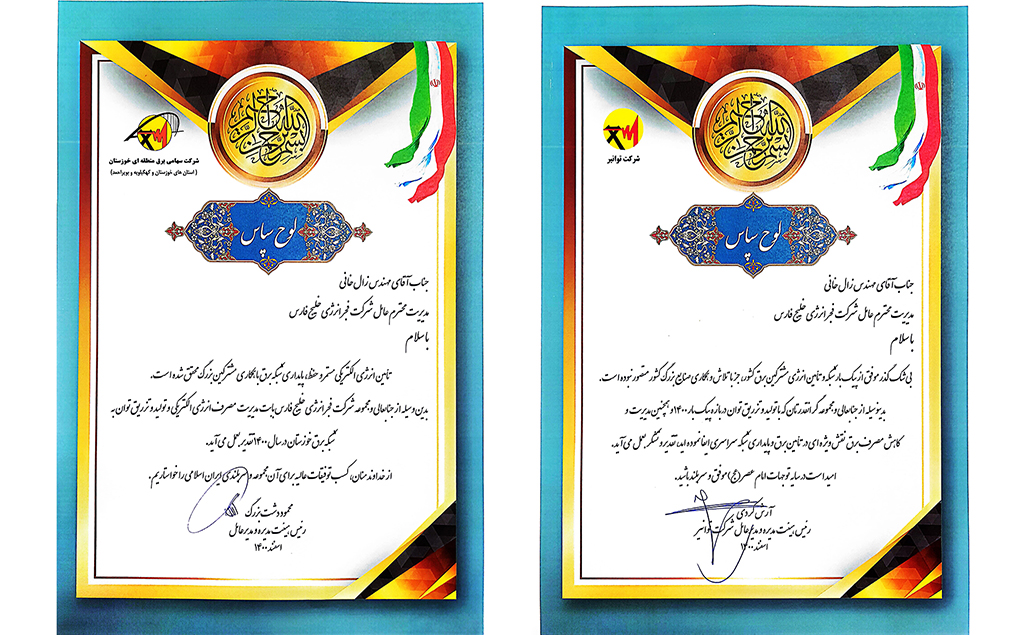 بسم الله الرحمن الرحیم
شرکت سهامی برق منطقه ای خوزستان
(استان های خوزستان و کهگیلویه و بویراحمد)
لوح سپاس
جناب آقای مهندس زال خانی
مدیریت محترم عامل شرکت فجر انرژی خلیج فارس
با سلام
تأمین انرژی الکتریکی مستمر و حفظ پایداری شبکه برق با همکاری مشترکین بزرگ محقق شده است.
بدین وسیله از جنابعالی و مجموعه شرکت فجر انرژی خلیج فارس بابت مدیریت مصرف انرژی الکتریکی و تولید و تزریق توان به
شبکه برق خوزستان در سال ۱۴۰۰ تقدیر بعمل می آید.
از خداوند منان، کسب توفیقات عالیه برای آن مجموعه و سربلندی ایران اسلامی را خواستاریم.
محمود دشت بزرگ
رئیس هیئت مدیره و مدیرعامل
اسفند ۱۴۰۰
بسم الله الرحمن الرحیم
شرکت توانیر
لوح سپاس
جناب آقای مهندس زال خانی
مدیریت محترم عامل شرکت فجر انرژی خلیج فارس
با سلام
بی شک گذر موفق از پیک بار شبکه و تامین انرژی مشترکین برق کشور، جز با تلاش و همکاری صنایع بزرگ کشور متصور نبوده است.
بدینوسیله از جنابعالی و مجموعه گرانقدرتان که با تولید و تزریق توان در بازه پیک بار ۱۴۰۰ و همچنین مدیریت و
کاهش مصرف برق نقش ویژه ای در تامین برق و پایداری شبکه سراسری ایفا نموده اید، تقدیر و تشکر بعمل می آید.
امید است در سایه توجهات امام عصر (عج) موفق و سربلند باشید.
آرش کردی
رئیس هیئت مدیره و مدیرعامل شرکت توانیر
اسفند ۱۴۰۰